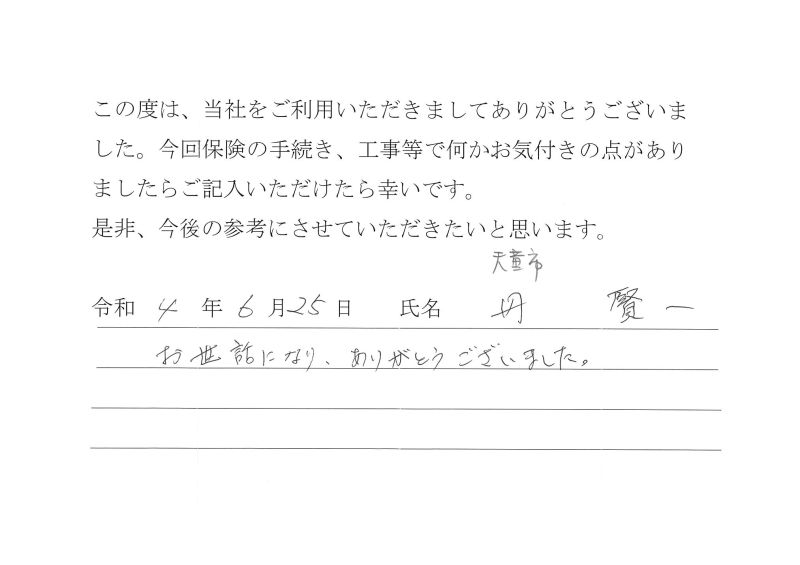 この度は、当社をご利用いただきましてありがとうございま
した。今回保険の手続き、工事等で何かお気付きの点があり
ましたらご記入いただけたら幸いです。
是非、今後の参考にさせていただきたいと思います。
天童市
令和 4 年 6 月 25 日 氏名 丹 賢一
お世話になり、ありがとうございました。